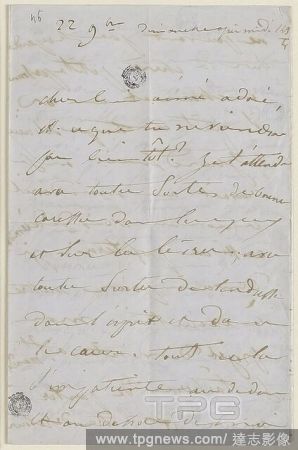 22 9bre Dimanche après midi
cher bien aimé adoré,
est-ce que tu ne viendras
pas bientôt? Je t'attends
avec toutes sortes de bonnes
caresses dans les yeux
et sur les lèvres, avec
toutes sortes de tendresses
dans l'esprit et dans
le cœur. tout cela
s'impatiente au dedans
et au dehors de moi
TPG
www.tpgnews.com / 達志影像